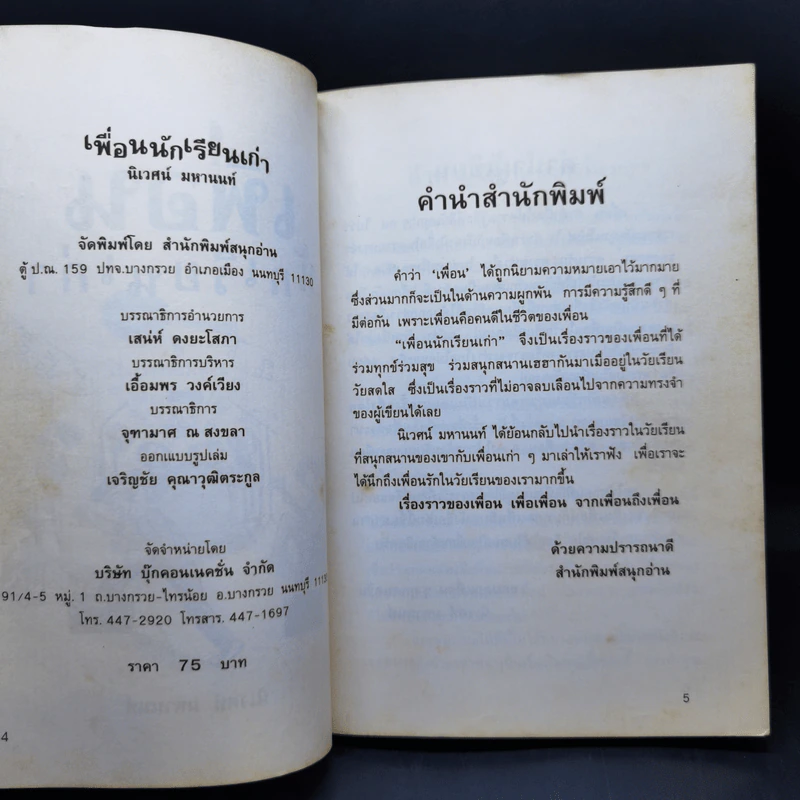 เพื่อนนักเรียนเก่า
นิเวศน์ มหานนท์
จัดพิมพ์โดย สำนักพิมพ์สนุกอ่าน
ตู้ ป.ณ. 159 ปทจ.บางกรวย อำเภอเมือง นนทบุรี 11130
บรรณาธิการอำนวยการ
เสน่ห์ ดงยะโสภา
บรรณาธิการบริหาร
เอื้อมพร วงค์เวียง
บรรณาธิการ
จุฑามาศ ณ สงขลา
ออกแบบรูปเล่ม
เจริญชัย คุณาวุฒิตระกูล
จัดจำหน่ายโดย
บริษัท บุ๊กคอนเนคชั่น จำกัด
91/4-5 หมู่. 1 ถ.บางกรวย-ไทรน้อย อ.บางกรวย นนทบุรี 11130
โทร. 447-2920 โทรสาร. 447-1697
ราคา 75 บาท
4
คำนำสำนักพิมพ์
คำว่า ‘เพื่อน’ ได้ถูกนิยามความหมายเอาไว้มากมาย
ซึ่งส่วนมากก็จะเป็นในด้านความผูกพัน การมีความรู้สึกดี ๆ ที่
มีต่อกัน เพราะเพื่อนคือคนดีในชีวิตของเพื่อน
“เพื่อนนักเรียนเก่า” จึงเป็นเรื่องราวของเพื่อนที่ได้
ร่วมทุกข์ร่วมสุข ร่วมสนุกสนานเฮฮากันมาเมื่ออยู่ในวัยเรียน
วัยสดใส ซึ่งเป็นเรื่องราวที่ไม่อาจลบเลือนไปจากความทรงจำ
ของผู้เขียนได้เลย
นิเวศน์ มหานนท์ ได้ย้อนกลับไปนำเรื่องราวในวัยเรียน
ที่สนุกสนานของเขากับเพื่อนเก่า ๆ มาเล่าให้เราฟัง เพื่อเราจะ
ได้นึกถึงเพื่อนรักในวัยเรียนของเรามากขึ้น
เรื่องราวของเพื่อน เพื่อเพื่อน จากเพื่อนถึงเพื่อน
ด้วยความปรารถนาดี
สำนักพิมพ์สนุกอ่าน
5